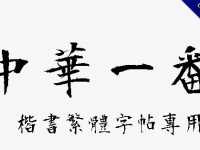 中華一番
楷書繁體字帖專用